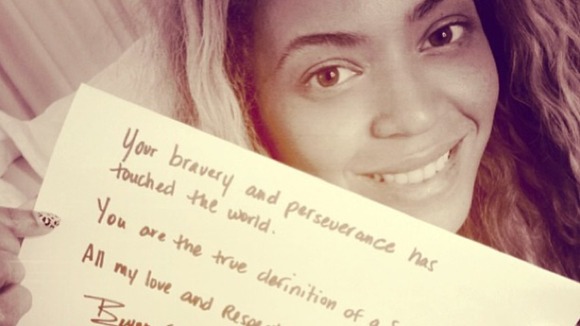 Your bravery and perseverance has
touched the world.
You are the true definition of a
All my love and